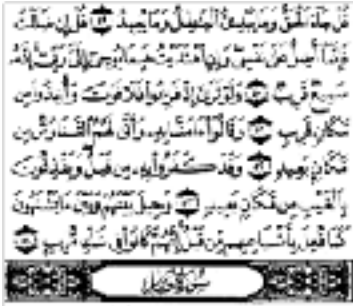 قُلْ جَاءَ الْحَقُّ وَمَا يُبْدِئُ الْبَاطِلُ وَمَا يُعِيدُ ٤٩ قُلْ إِن ضَلَلْتُ
فَإِنَّمَا أَضِلُّ عَلَىٰ نَفْسِي وَإِنِ اهْتَدَيْتُ فَبِمَا يُوحِي إِلَيَّ رَبِّي إِنَّهُ
سَمِيعٌ قَرِيبٌ ٥٠ وَلَوْ تَرَىٰ إِذْ فَزِعُوا فَلَا فَوْتَ وَأُخِذُوا مِن
مَّكَانٍ قَرِيبٍ ٥١ وَقَالُوا ءَامَنَّا بِهِ وَأَنَّىٰ لَهُمُ التَّنَاوُشُ مِن
مَّكَانٍ بَعِيدٍ ٥٢ وَقَدْ كَفَرُوا بِهِ مِن قَبْلُ وَيَقْذِفُونَ
بِالْغَيْبِ مِن مَّكَانٍ بَعِيدٍ ٥٣ وَحِيلَ بَيْنَهُمْ وَبَيْنَ مَا يَشْتَهُونَ
كَمَا فُعِلَ بِأَشْيَاعِهِم مِّن قَبْلُ إِنَّهُمْ كَانُوا فِي شَكٍّ مُّرِيبٍ ٥٤
سُورَةُ